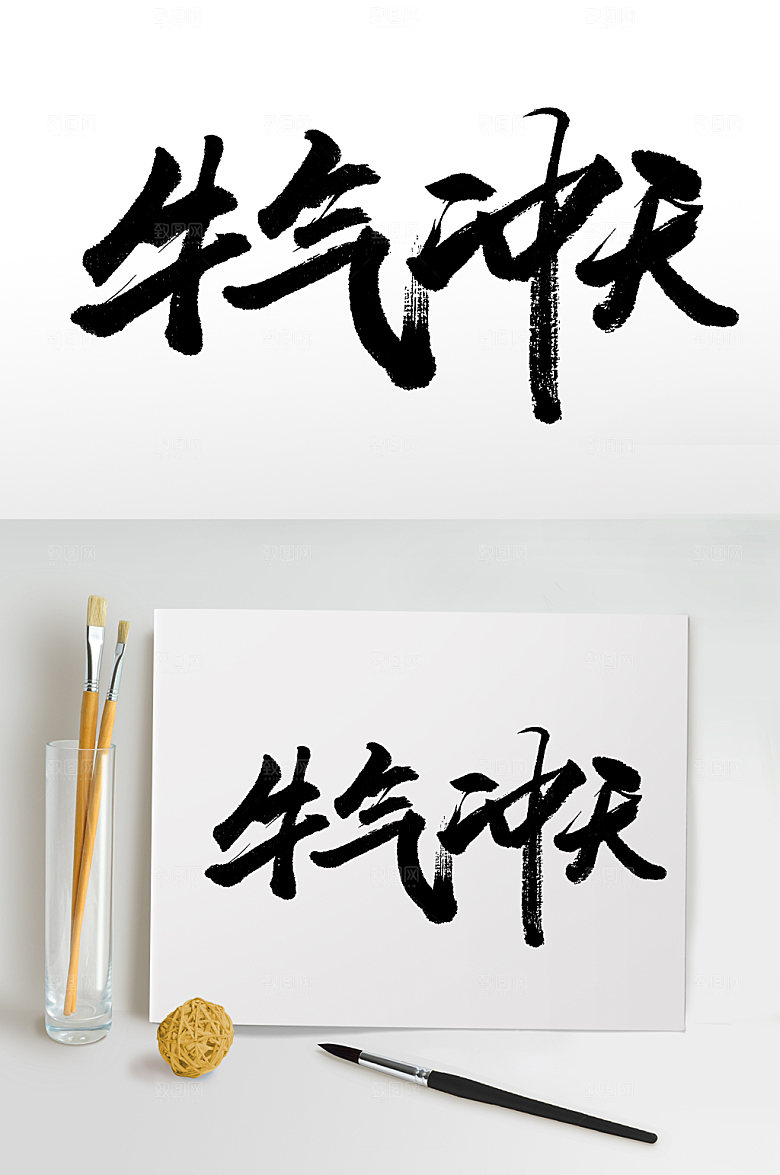 牛气冲天
牛气冲天